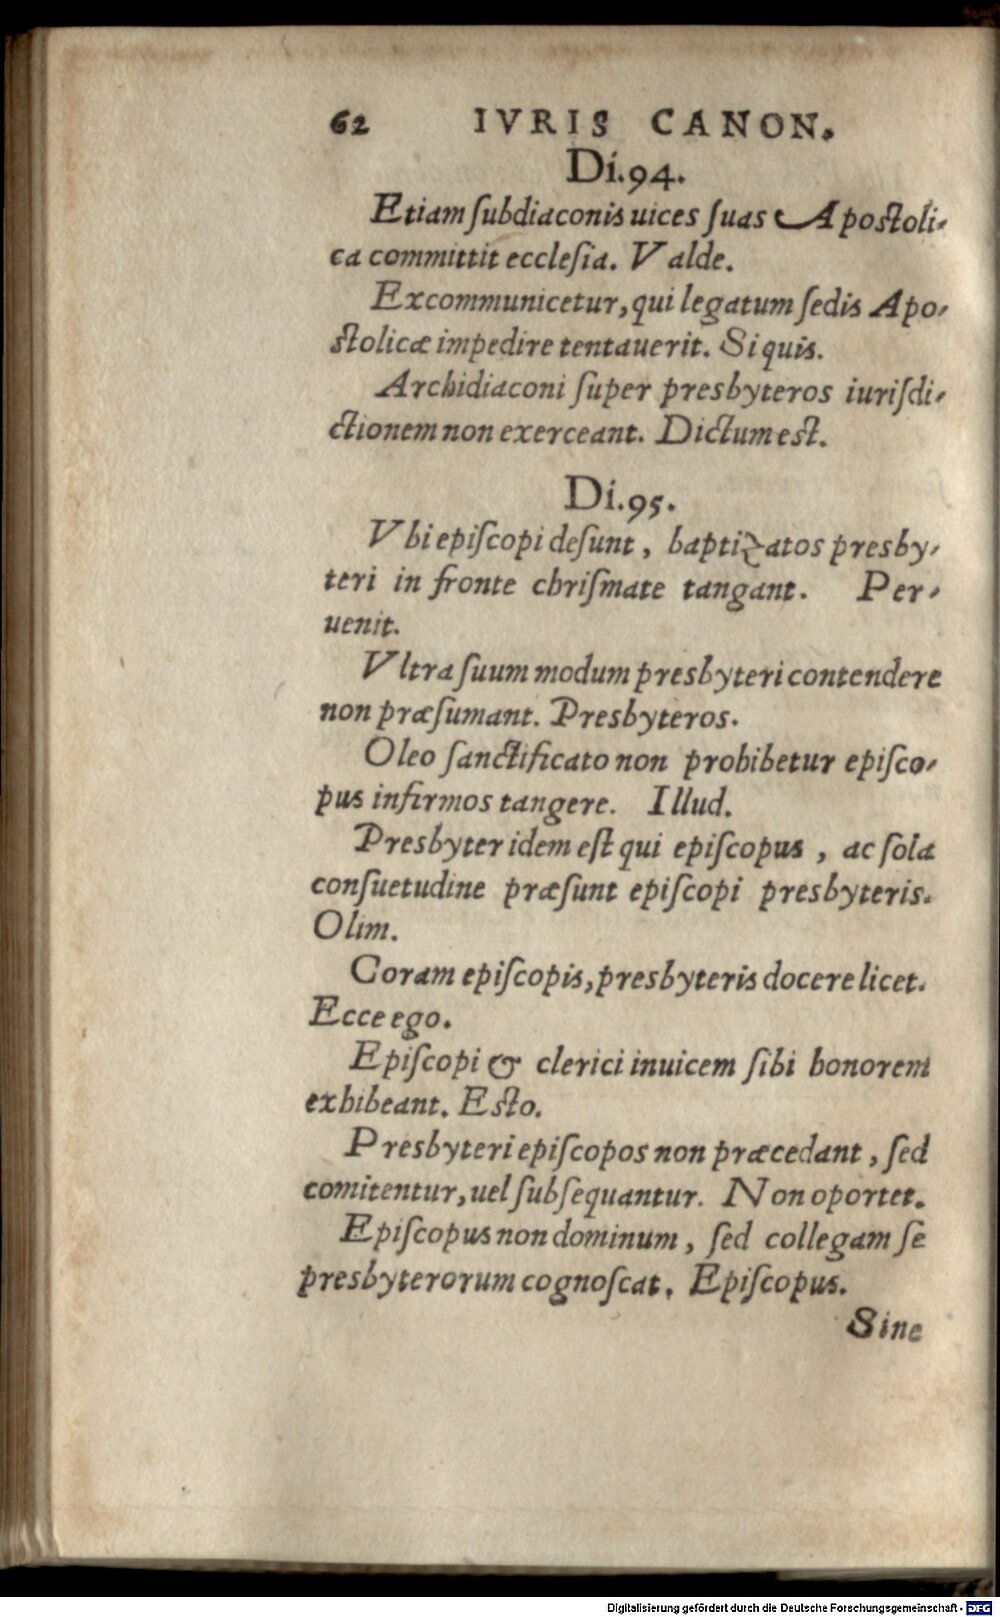 62 IVRIS CANON.
Di.94.
Etiam ſubdiaconis uices ſuas Apoſtoli-
ca committit eccleſia. Valde.
Excommunicetur, qui legatum ſedis Apo-
ſtolicæ impedire tentauerit. Si quis.
Archidiaconi ſuper presbyteros iuriſdi-
ctionem non exerceant. Dictum eſt.
Di.95.
Vbi epiſcopi deſunt, baptizatos presby-
teri in fronte chriſmate tangant. Per-
uenit.
Vltra ſuum modum presbyteri contendere
non præſumant. Presbyteros.
Oleo ſanctificato non prohibetur epiſco-
pus infirmos tangere. Illud.
Presbyter idem eſt qui epiſcopus, ac ſola
conſuetudine præſunt epiſcopi presbyteris.
Olim.
Coram epiſcopis, presbyteris docere licet.
Ecce ego.
Epiſcopi & clerici inuicem ſibi honorem
exhibeant. Eſto.
Presbyteri epiſcopos non præcedant, ſed
comitentur, uel ſubſequantur. Non oportet.
Epiſcopus non dominum, ſed collegam ſe
presbyterorum cognoſcat. Epiſcopus.
Sine
Digitalisierung gefördert durch die Deutsche Forschungsgemeinschaft - DFG